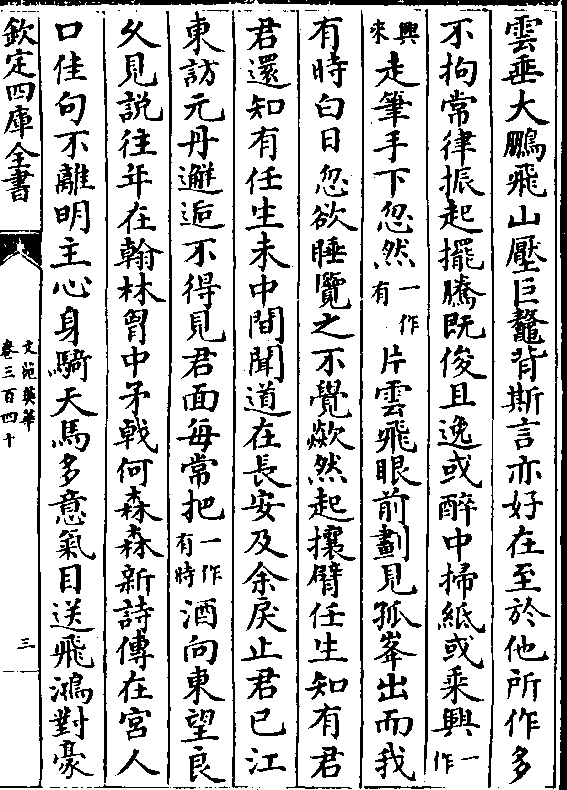 雲垂大鵬飛山壓巨鼇背斯言亦好在至於他所作多
不拘常律振起擺騰既俊且逸或醉中掃紙或乘興一作
興來走筆手下忽然一作有片雲飛眼前劃見孤峯出而我
有時白日忽欲睡覽之不覺歘然起攘臂任生知有君
君還知有任生未中間聞道在長安及余戾止君已江
東訪元丹邂逅不得見君面每常把一作有時酒向東望良
久見說往年在翰林胷中矛戟何森森新詩傳在宮人
口佳句不離明主心身騎天馬多意氣目送飛鴻對豪
欽定四庫全書
文苑英華
卷三百四十
三